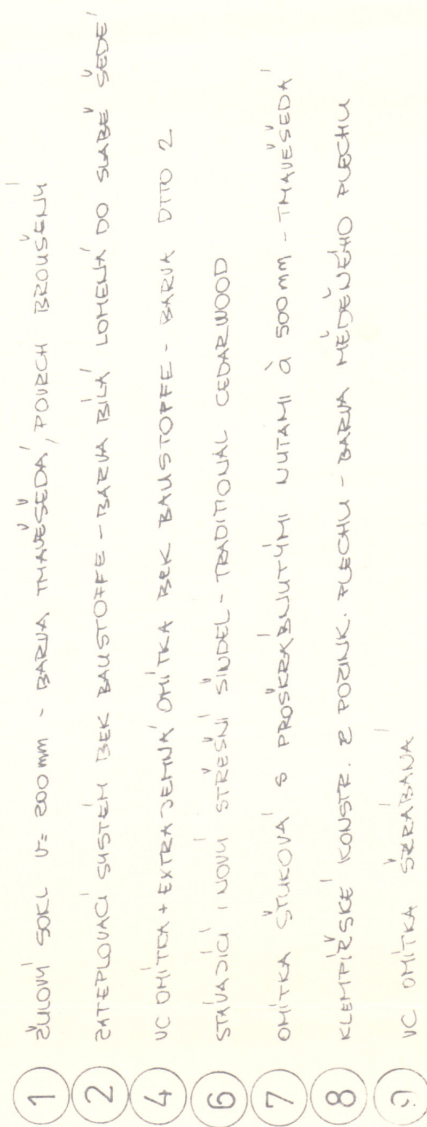 1 ŽULOVÝ SOKL V= 200 mm - BARVA TMAVĚŠEDÁ, POVRCH BROUŠENÝ
2 ZATEPLOVACÍ SYSTÉM BEK BAUSTOFFE - BARVA BÍLÁ LOMENÁ DO SLABĚ ŠEDÉ
4 VC OMÍTKA + EXTRA JEMNÁ OMÍTKA BEK BAUSTOFFE - BARVA DTTO 2
6 STÁVAJÍCÍ I NOVÝ STŘEŠNÍ ŠINDEL - TRADITIONAL CEDARWOOD
7 OMÍTKA ŠTUKOVÁ S PROŠKRÁBNUTÝMI NUTAMI À 500 mm - TMAVĚŠEDÁ
8 KLEMPÍŘSKÉ KONSTR. Z POZINK. PLECHU - BARVA MĚDĚNÉHO PLECHU
9 VC OMÍTKA ŠKRÁBANÁ